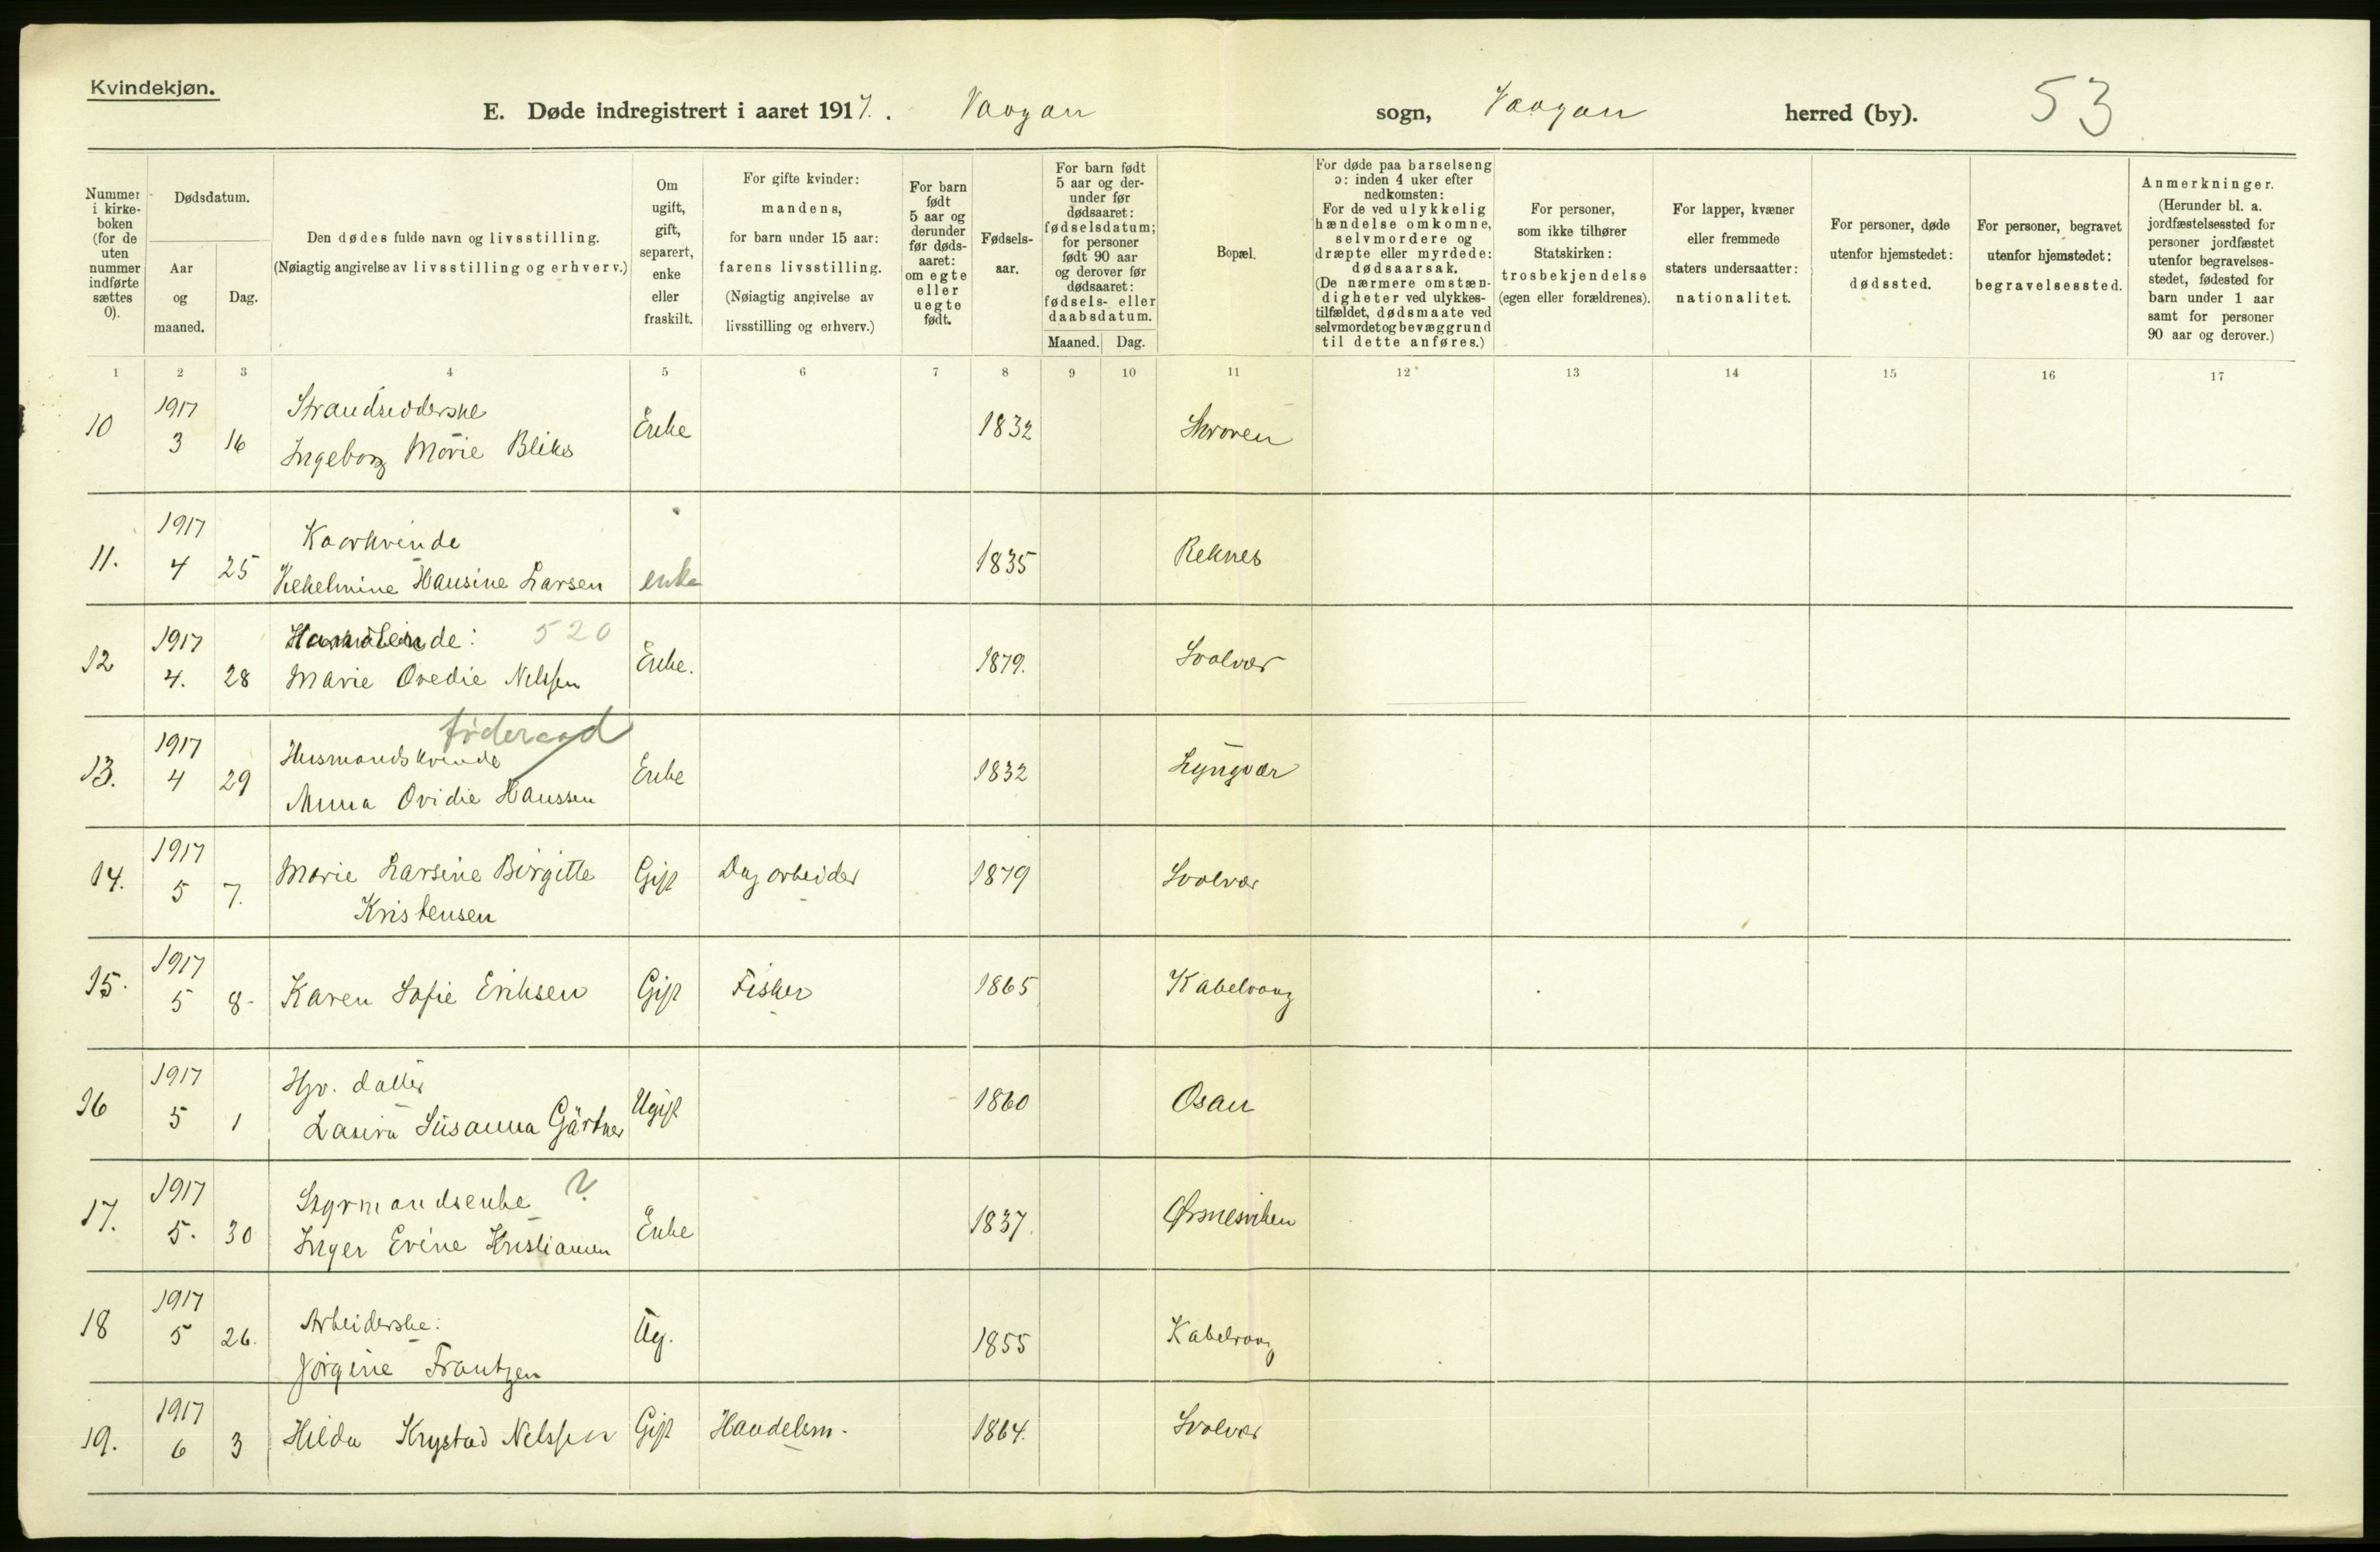 Kvindekjøn.
E. Døde indregistrert i aaret 1917. Vaagan sogn, Vaagan herred (by). 53
Nummer i kirke-
boken
(for de
uten
nummer
indførte
sættes
0).
Dødsdatum.
Aar
og
maaned.
Dag.
Den dødes fulde navn og livsstilling.
(Nøiagtig angivelse av livsstilling og erhverv.)
Om
ugift,
gift,
separert,
enke
eller
fraskilt.
For gifte kvinder:
mandens,
for barn under 15 aar:
farens livsstilling.
(Nøiagtig angivelse av
livsstilling og erhverv.)
For barn
født
5 aar og
derunder
før døds-
aaret:
om egte
eller
uegte
født.
Fødsels-
aar.
For barn født
5 aar og der-
under før
dødsaaret:
fødselsdatum;
for personer
født 90 aar
og derover før
dødsaaret:
fødsels- eller
daabsdatum.
Maaned. Dag.
Bopæl.
For døde paa barselseng
ɔ: inden 4 uker efter
nedkomsten:
For de ved ulykkelig
hændelse omkomne,
selvmordere og
dræpte eller myrdede:
dødsaarsak.
(De nærmere omstæn-
digheter ved ulykkes-
tilfældet, dødsmaate ved
selvmordet og bevæggrund
til dette anføres.)
For personer,
som ikke tilhører
Statskirken:
trosbekjendelse
(egen eller forældrenes).
For lapper, kvæner
eller fremmede
staters undersaatter:
nationalitet.
For personer, døde
utenfor hjemstedet:
dødssted.
For personer, begravet
utenfor hjemstedet:
begravelsessted.
Anmerkninger.
(Herunder bl. a.
jordfæstelsessted for
personer jordfæstet
utenfor begravelses-
stedet, fødested for
barn under 1 aar
samt for personer
90 aar og derover.)
1 2 3 4 5 6 7 8 9 10 11 12 13 14 15 16 17
1917 Strandsidderske
10 3 16 Ingeborg Marie Bliks Enke 1832 Skroven
1917 Kaarkvinde
11. 4 25 Hansine Larsen enke 1835 Reknes
1917 520
12 4. 28 Marie Ovedie Nilssen Enke. 1879. Svolvær
føderaad
1917 Husmandskvinde
13. 4 29 Anna Ovidie Hanssen Enke 1832 Lyngvær
1917
14. 5 7. Marie Larsine Birgitte Gift Dagarbeider 1879 Svolvær
Kristensen
1917
15. 5 8. Karen Sofie Eriksen Gift Fisker 1865 Kabelvaag
1917 Hjv. datter
16 5 1 Laura Susanna Gärtner Ugift 1860 Osan
1917 Styrmandsenke ?
17. 5. 30 Inger Evine Kristiansen Enke 1837. Ørsnesviken
1917 Arbeiderske:
18 5 26. Jørgine Frantzen Ug. 1855 Kabelvaag
1917
19. 6 3 Hilda Krystad Nilssen Gift Handelsm. 1864. Svolvær